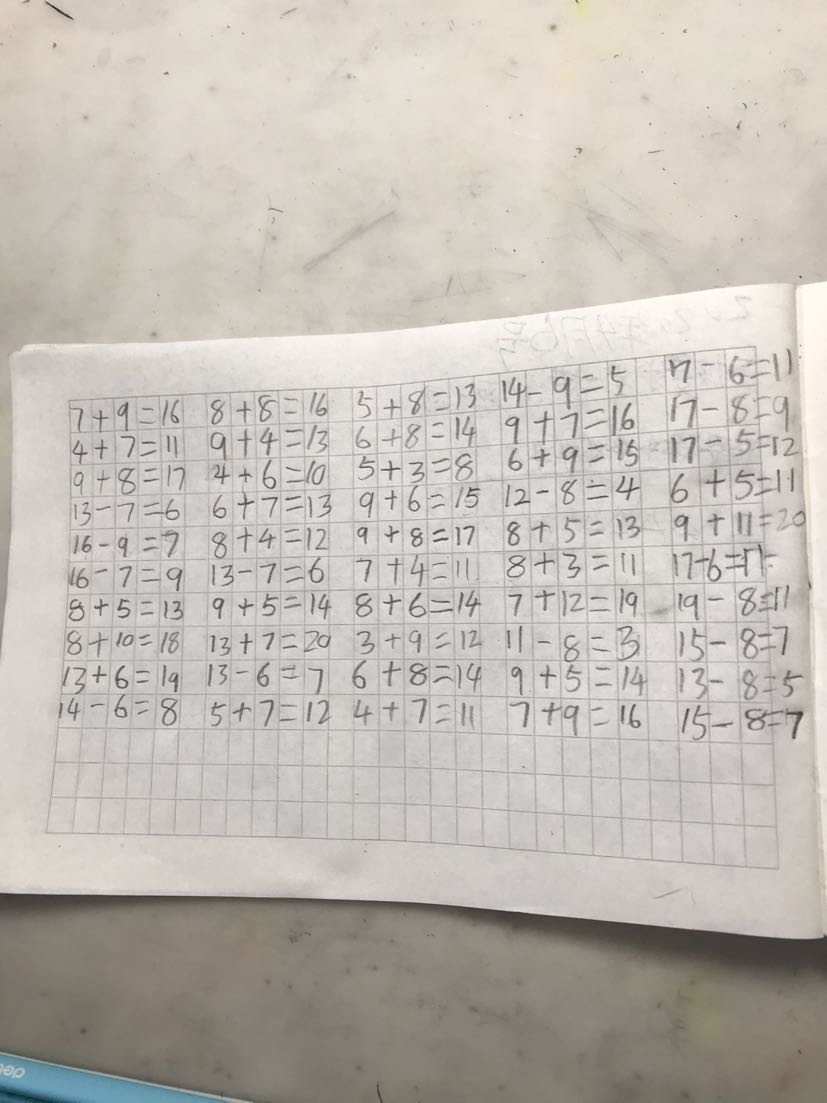 7+9=16 8+8=16 5+8=13 14-9=5 17-6=11
4+7=11 9+4=13 6+8=14 9+7=16 17-8=9
9+8=17 4+6=10 5+3=8 6+9=15 17-5=12
13-7=6 6+7=13 9+6=15 12-8=4 6+5=11
16-9=7 8+4=12 9+8=17 8+5=13 9+11=20
16-7=9 13-7=6 7+4=11 8+3=11 17-6=11
8+5=13 9+5=14 8+6=14 7+12=19 19-8=11
8+10=18 13+7=20 3+9=12 11-8=3 15-8=7
13+6=19 13-6=7 6+8=14 9+5=14 13-8=5
14-6=8 5+7=12 4+7=11 7+9=16 15-8=7